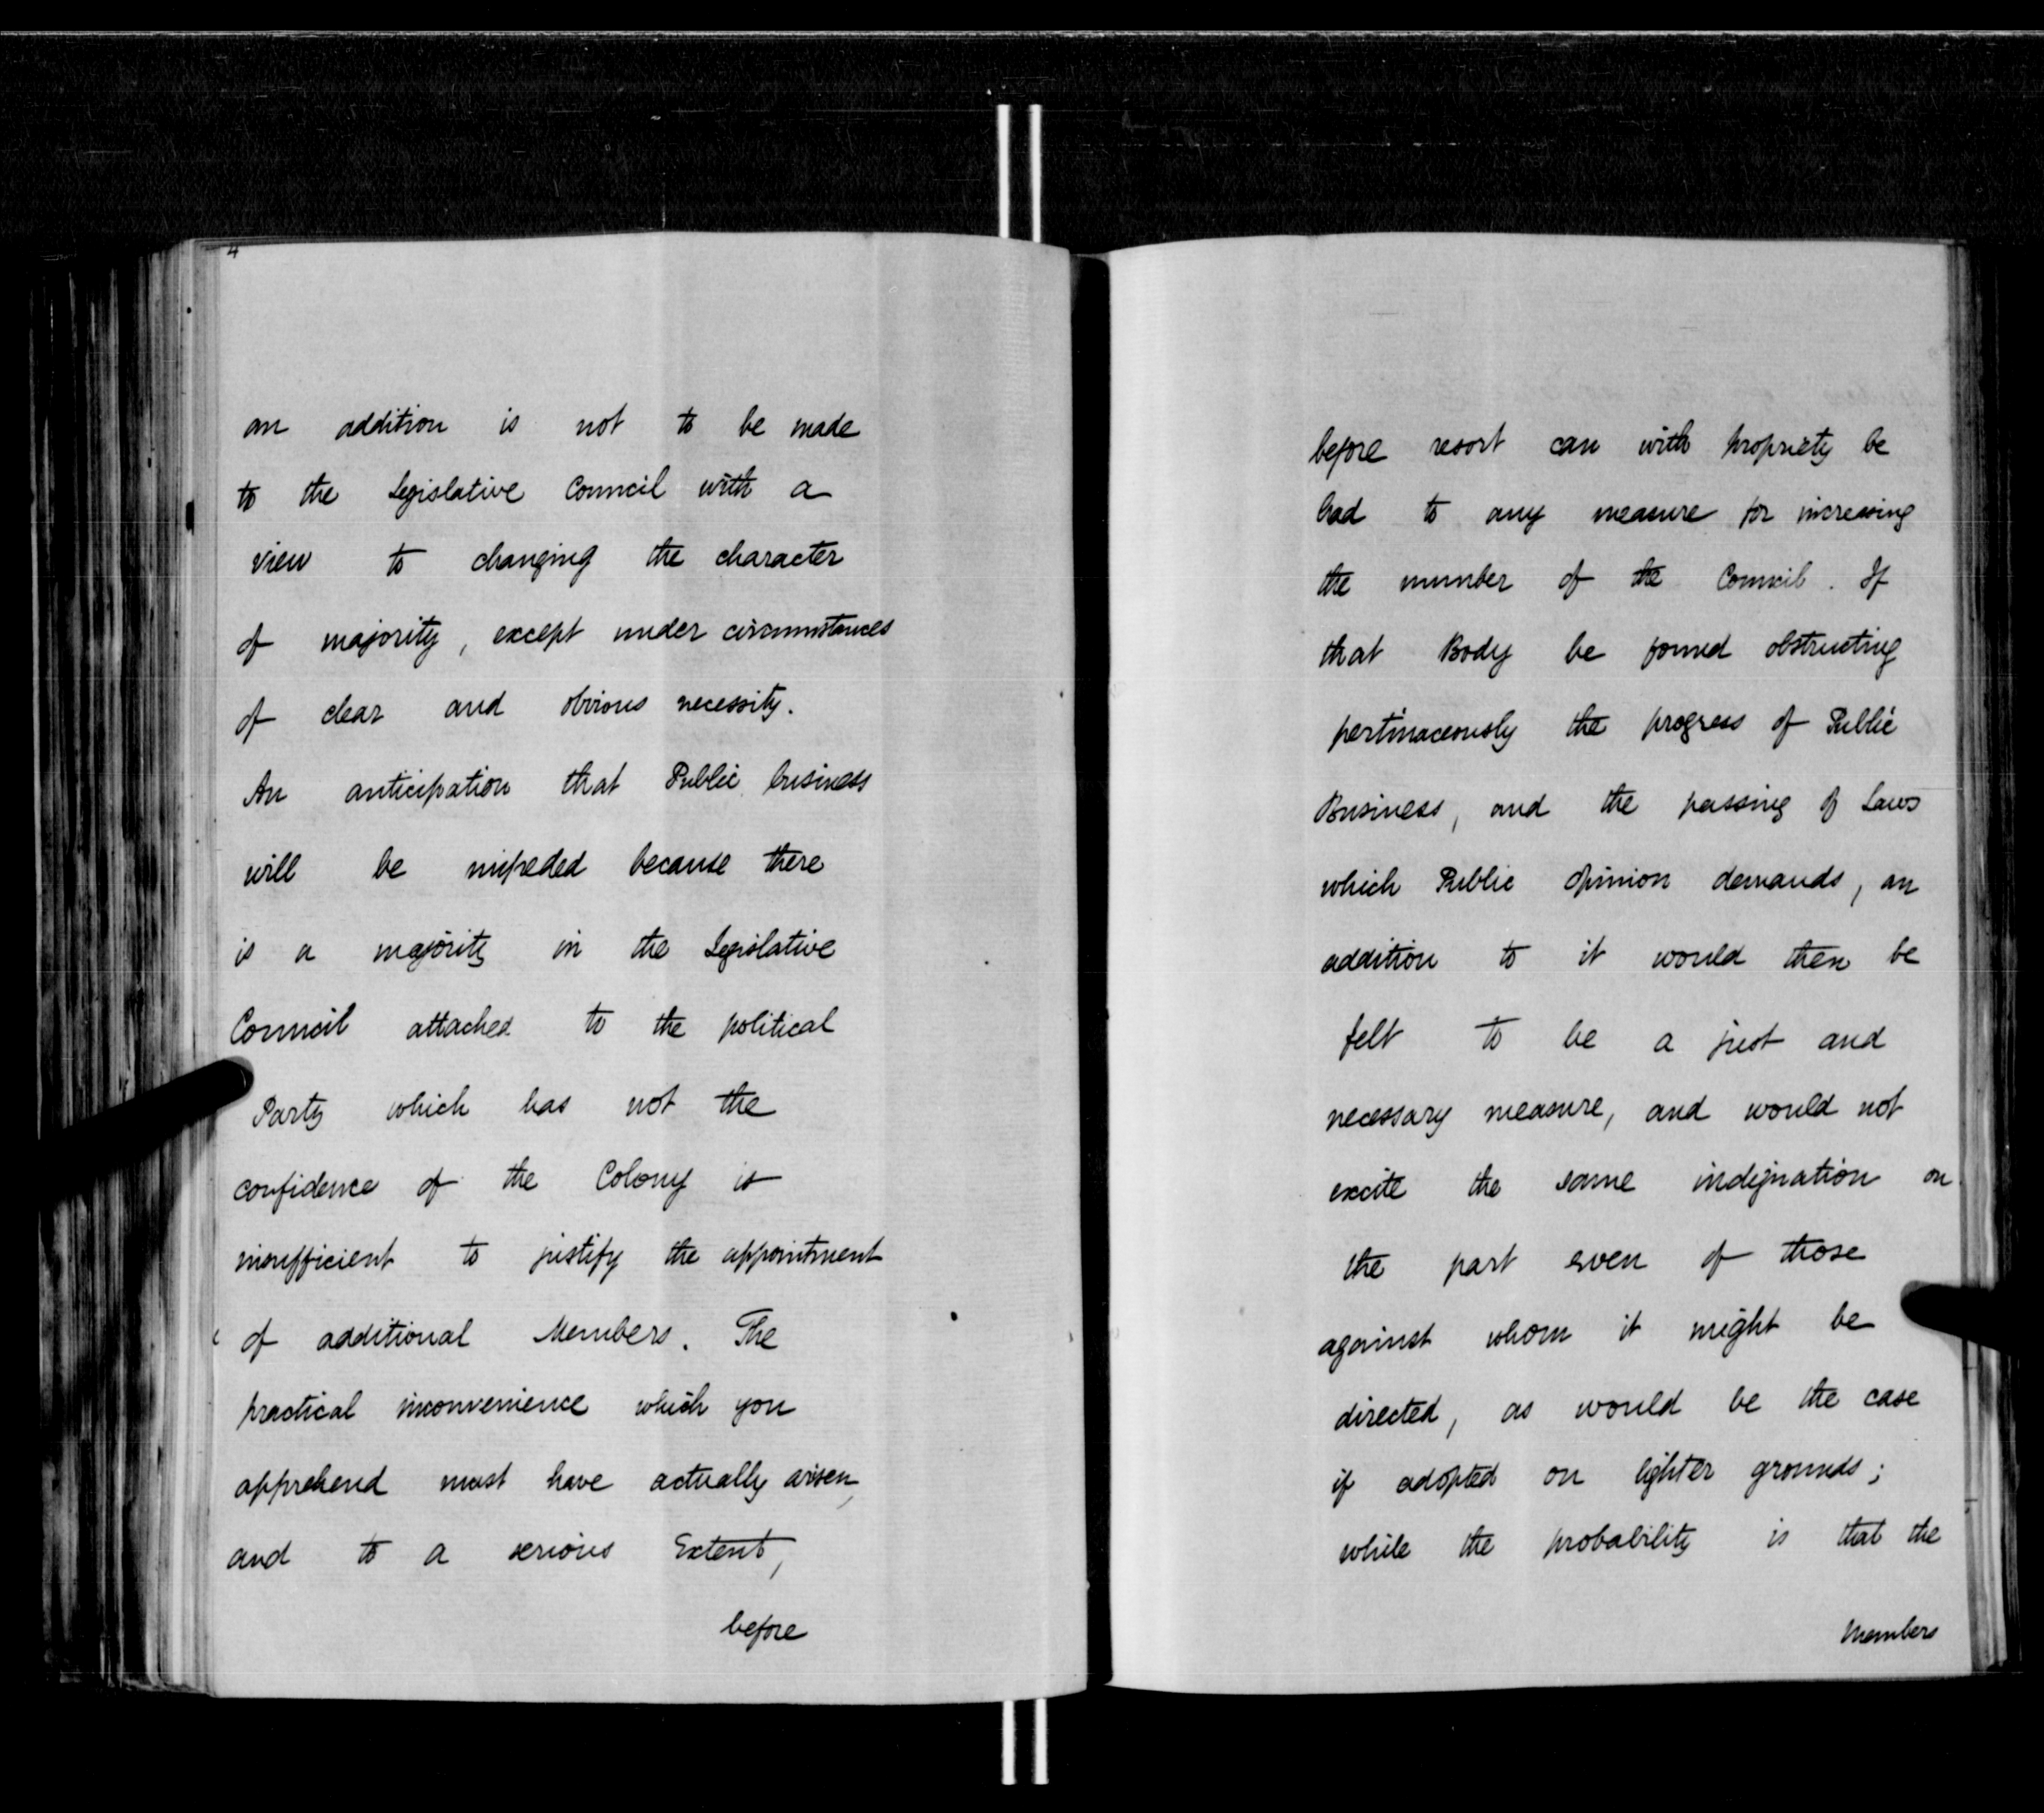 4
an addition is not to be made
to the Legislative Council with a
view to changing the character
of majority, except under circumstances
of clear and obvious necessity.
An anticipation that Public business
will be impeded because there
is a majority in the Legislative
Council attached to the political
Party which has not the
confidence of the Colony is
insufficient to justify the appointment
of additional Members. The
practical inconvenience which you
apprehend must have actually arisen,
and to a serious Extent,
before
before resort can with propriety be
had to any measure for increasing
the number of the Council. If
that Body be found obstructing
pertinaceously the progress of Public
Business, and the passing of Laws
which Public Opinion demands, an
addition to it would then be
felt to be a just and
necessary measure, and would not
excite the same indignation on
the part even of those
against whom it might be
directed, as would be the case
if adopted on lighter grounds;
while the probability is that the
Members